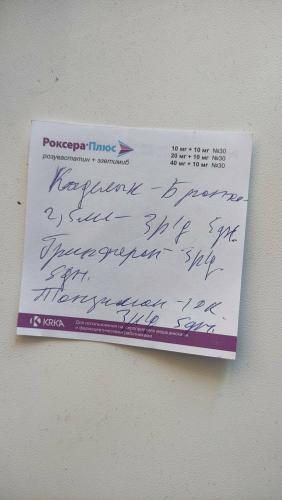 Роксера®Плюс
розувастатин + эзетимиб
10 мг + 10 мг №30
20 мг + 10 мг №30
40 мг + 10 мг №30
Каделык - Бронхо
2,5мл - 3р/д 5дн.
Гриппферон - 3р/д
5дн.
Тонзилгон - 10к
3р/д 5дн.
KRKA
Для использования на мероприятиях медицинскими
и фармацевтическими работниками